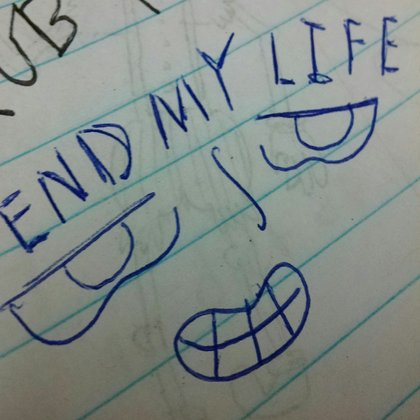 END MY LIFE